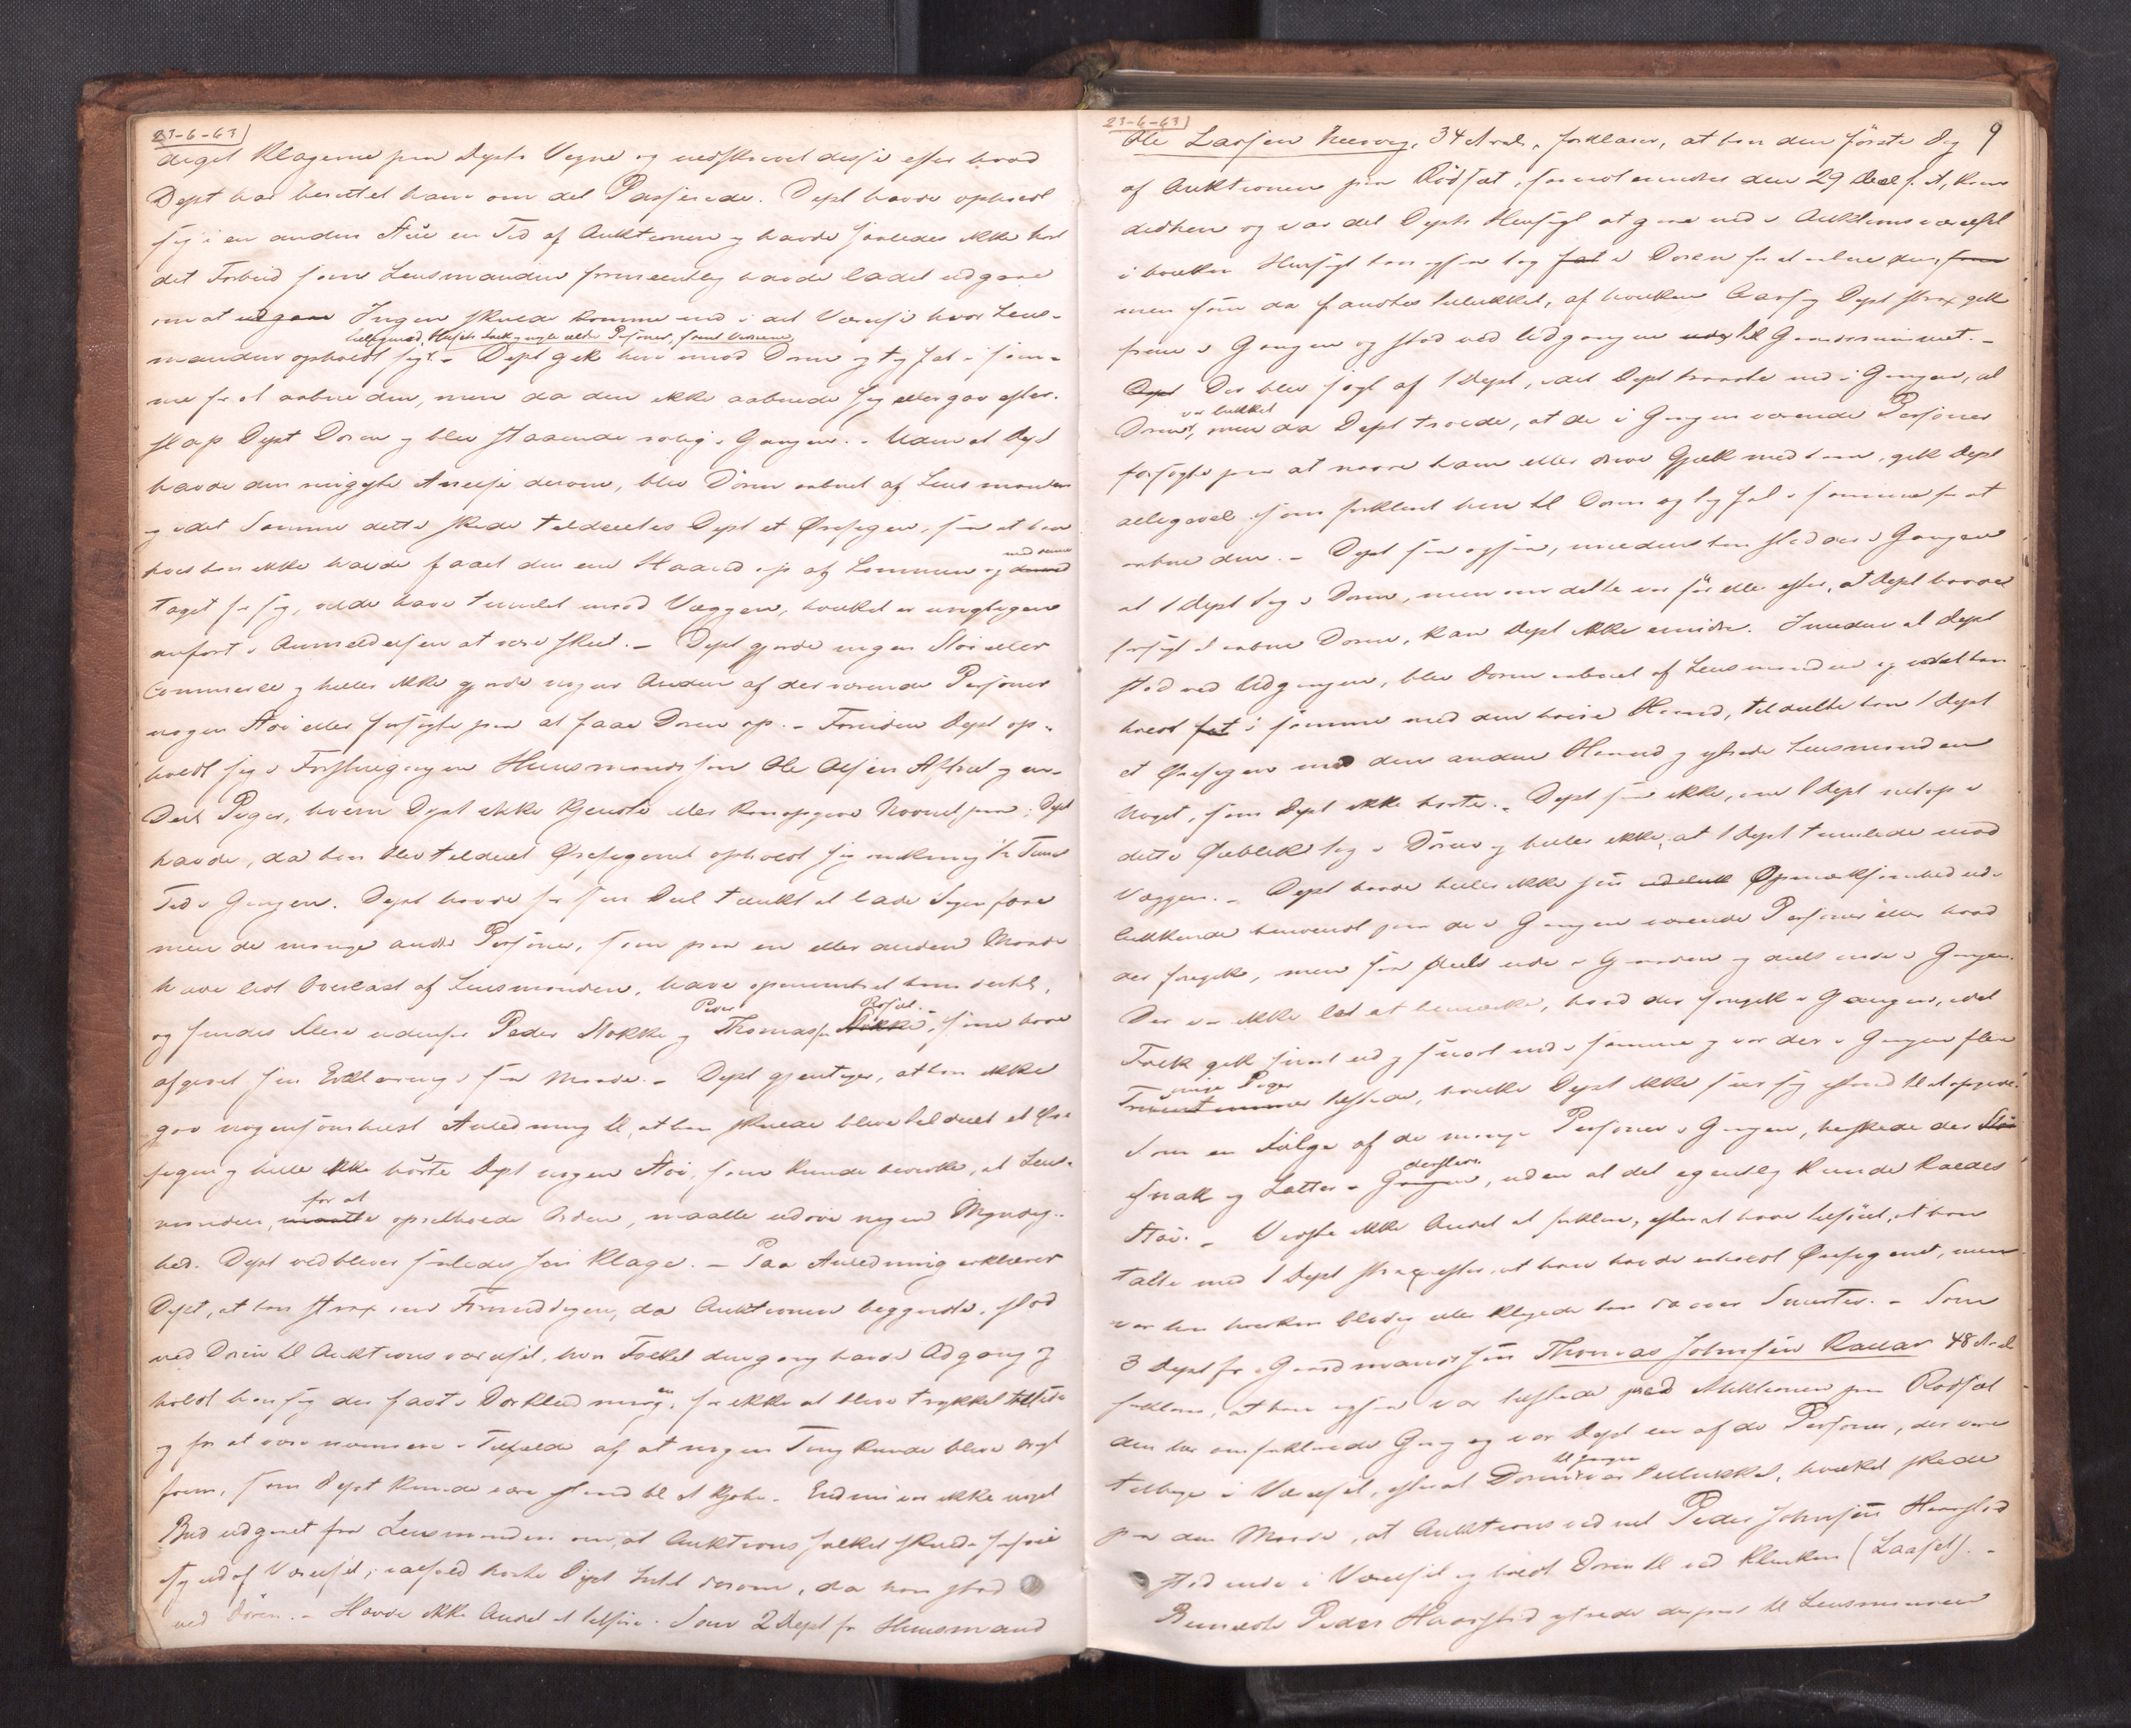 23-6-63)
diget Klagerne paa Depts Vegne og nedskrevet disse efter hvad
Dept har berettet ham om det Passerede. Dept havde opholdt
sig i en anden Stue en Tid af Auktionen og havde saaledes ikke hørt
det Forbud som Lensmanden formeentlig havde ladet udgaae
om at udgaae Ingen skulde komme ind i det Værelse hvor Lens-
manden opholdt sig. - Dept gik hen imod Døren og tog fat i sam-
me for at aabne den, men da den ikke aabnede sig eller gav efter.
slap Dept Døren og blev staaende rolig i Gangen. - Uden at Dept
havde den ringeste Anelse derom, blev Døren aabnet af Lensmanden
og idet Samme dette skede tildeeltes Dept et Ørefigen, saa at han
hvis han ikke havde faaet den ene Haand op af Lommen og med denne
taget for sig, vilde have tumlet imod Væggen, hvilket er unøiagtigen
anført i Anmeldelsen at være skeet. - Dept gjorde ingen Støi eller
Commerse og heller ikke gjorde nogen Anden af de værende Personer
nogen Støi eller forsøgte paa at faae Døren op. - Foruden Dept op-
holdt sig i Forstuegangen Huusmandssøn Ole Olsen og en-
Deel Piger, hvem Dept ikke kjendte eller kan opgive Navnet paa; Dept
havde, da han blev tildeelt Ørefigenet opholdt sig omkring 1/2 Times
Tid i Gangen. Dept havde for sin Deel tænkt at lade Sagen fare
men de mange andre Personer, som paa en eller anden Maade
have lidt Overlast af Lensmanden, have opmuntret ham dertil,
og findes flere udenfor Peder Stokke og Thomas Stokke, som have
Peder Rosæt.
afgivet sin Erklæring i saa Maade. - Dept gjentager, at han ikke
gav nogensomhelst Anledning til, at han skulde blive tildeelt et Øre-
figen og heller ikke hørte Dept nogen Støi, som kunde bevirke, at Lens-
manden, maatte for at opretholde Orden, maatte udøve nogen Myndig-
hed. Dept vedbliver saaledes sin Klage. - Paa Anledning erklærer
Dept, at han strax om Formiddagen, da Auktionen begyndte, stod
ved Døren til Auktionsværelset, hvor Folket dengang havde Adgang og
holdt han sig der fast i Dørklædningen, for ikke at blive trykket tilside
og for at være nærmere i Tilfælde af at nogen Ting kunde blive bragt
frem, som Dept kunde være istand til at kjøbe. Endnu var ikke noget
Bud udgaaet fra Lensmanden om, at Auktionsfolket skulde forføie
sig ud af Værelset, ialfald hørte Dept Intet derom, da han stod
ved Døren. - Havde ikke Andet at tilføie. Som 2 Dept fr. Huusmand
23-6-63)
9
Ole Larsen, 34 Aar, forklarer, at han den første Dag
af Auktionen paa Rødsæt, formeentligen den 29 Decb. f. A, kom
didhen og var det Depts Hensigt at gaae ind i Auktionsværelset
i hvilken Hensigt han ogsaa tog fat i Døren for at aabne den, som
men som da fandtes tillukket, af hvilken Aarsag Dept strax gik
frem i Gangen og stod ved Udgangen ud til Gaardsrummet. -
Dept Der blev sagt af 1 Dept, idet Dept traadte ind i Gangen, at
Døren var lukket, men da Dept troede, at de i Gangen værende Personer
forsøgte paa at narre ham eller drive Gjæk med ham, gik Dept
alligevel som forklaret hen til Døren og tog fat i samme for at
aabne den. - Dept saa ogsaa, imedens han stod der i Gangen
at 1 Dept tog i Døren, men om dette var før eller efter, at Dept havde
forsøgt at aabne Døren, kan Dept ikke erindre. Imedens at Dept
stod ved Udgangen, blev Døren aabnet af Lensmanden og idet han
holdt fat i samme med den høire Haand, tildeelte han 1 Dept
et Ørefigen med den anden Haand og ytrede Lensmanden
Noget, som Dept ikke hørte. - Dept saa ikke, om 1 Dept netop i
dette Øieblik tog i Døren og heller ikke, at 1 Dept tumlede imod
Væggen. - Dept havde heller ikke sin Opmærksomhed ude-
lukkende henvendt paa de i Gangen værende Personer eller hvad
der foregik, men saa deels ude i Gaarden og deels inde i Gangen.
Der var ikke let at bemærke, hvad der foregik i Gangen, idet
Folk gik snart ud og snart ind i samme og var der i Gangen flere
Fruentimmer unge Piger tilstede, hvilke Dept ikke saa sig istand til at opgive.
Som en Følge af de mange Personer i Gangen, herskede der Støi
Snak og Latter i Gangen dersteds, uden at det egentlig kunde kaldes
Støi. - Vidste ikke Andet at forklare, efterat have tilføiet, at han
talte med 1 Dept strax efter, at han havde erholdt Ørefigenet, men
var han hverken blodig eller klagede han da over Smerter. - Som
3 Dept fr. Gaardmandssøn Thomas Johnsen 48 Aar
forklarer, at han ogsaa var tilstede paa Auktionen paa Rødsæt
den her omforklarede Gang og var Dept en af de Personer, der var
tilbage i Værelset, efterat Døren til Gangen var tillukket, hvilket skede
paa den Maade, at Auktionsvidnet Peder Johnsen Haarstad
stod inde i Værelset og holdt Døren til ved Klinken (Laaset). -
Bemeldte Peder Haarstad ytrede derpaa til Lensmanden